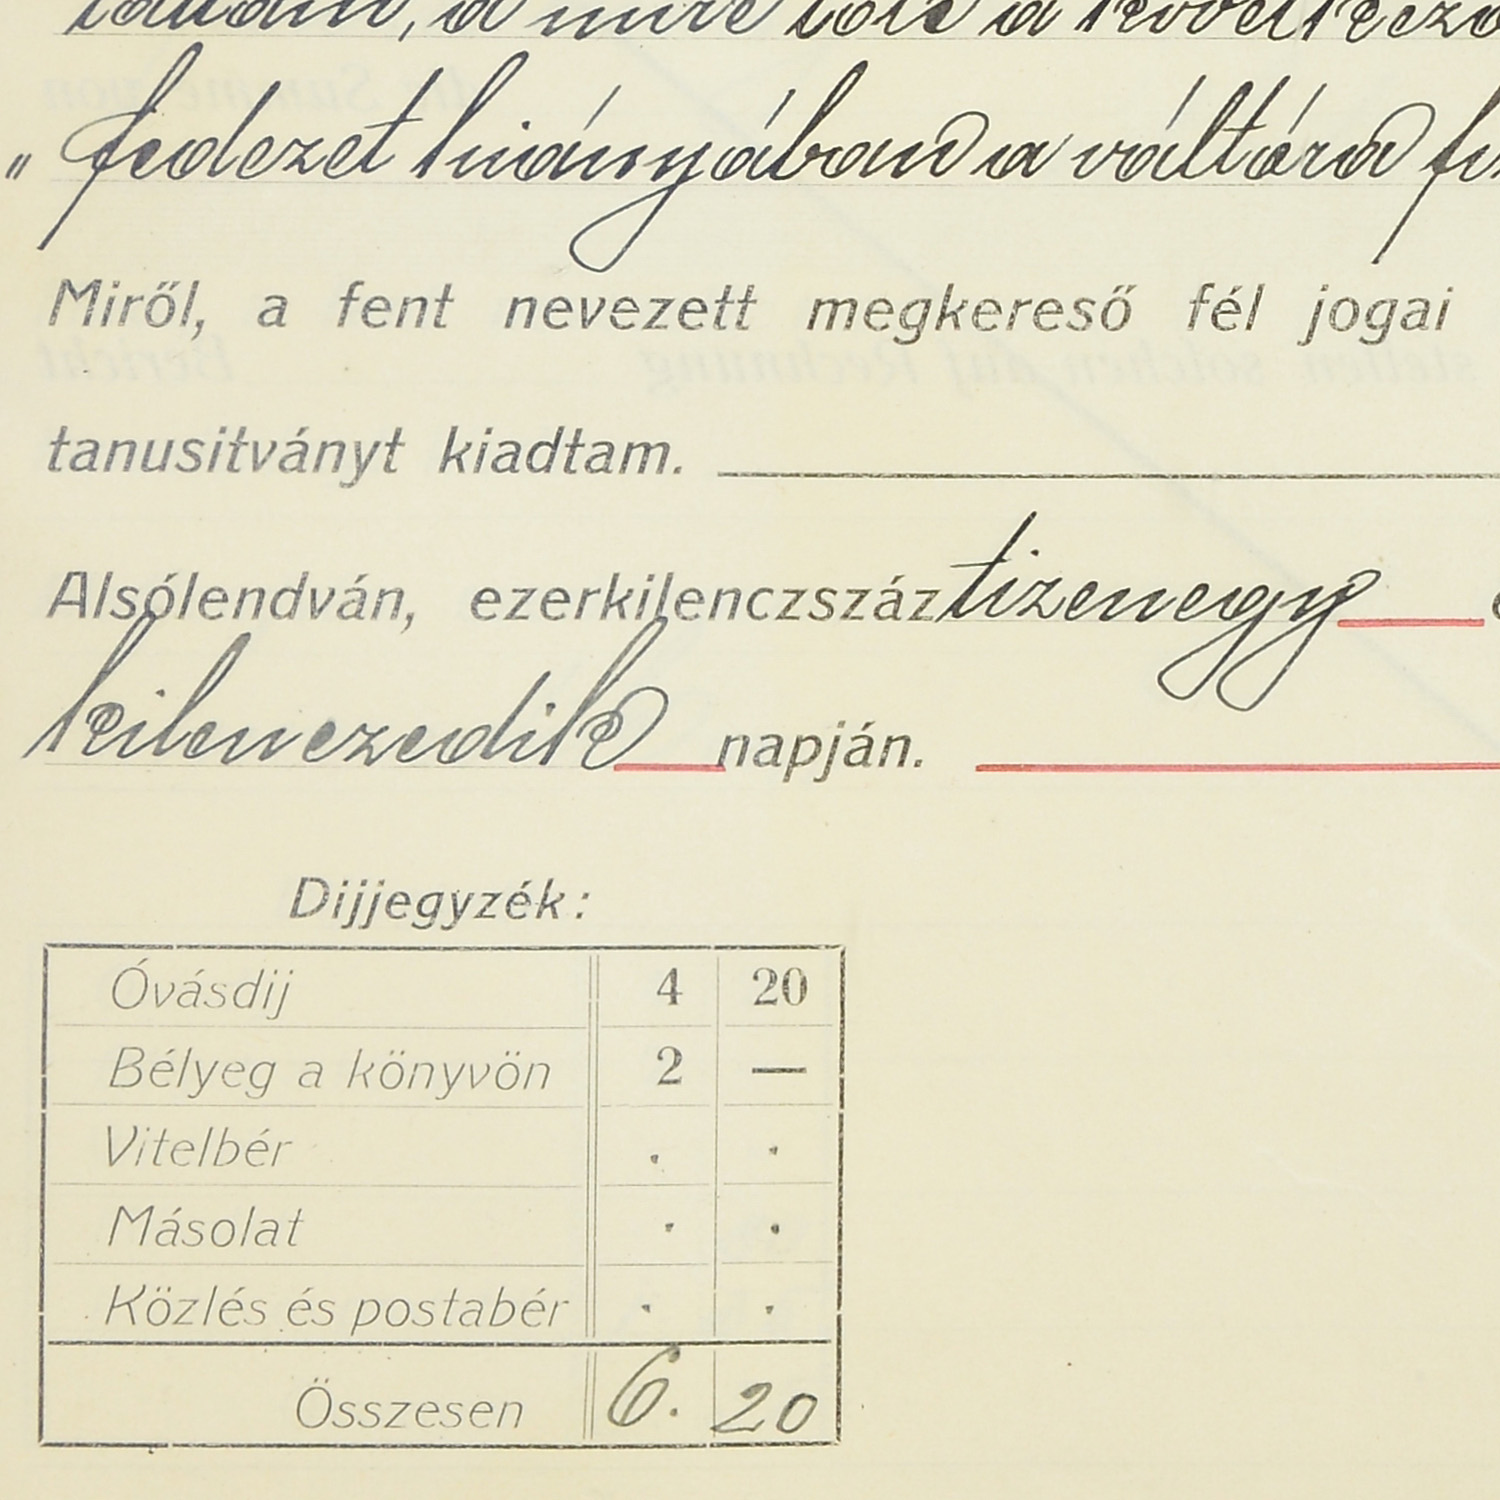 találtam, a mire tőle a következő
„fedezet hiányában a váltóra
Miről, a fent nevezett megkereső fél jogai
tanusitványt kiadtam.
Alsólendván, ezerkilenczszáz tizenegy
kilenczedik napján.
Dijjegyzék:
Óvásdij 4 20
Bélyeg a könyvön 2 —
Vitelbér . .
Másolat . .
Közlés és postabér . .
Összesen 6. 20